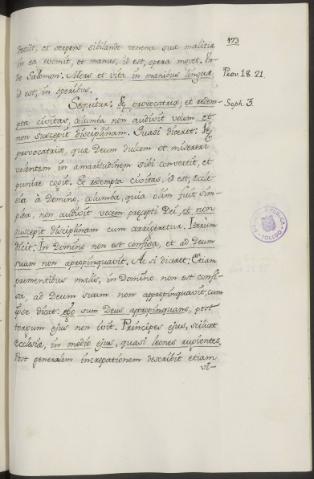 173
decit, et serpens sibilando venena sua malitia
in ea evomit, et manus, id est, opera movet. Un-
de Salomon: Mors et vita in manibus lingua,
id est, in operibus.
Prov. 18. 21.
Sequitur: Ve provocatrix, et redem-
ta civitas, columba non audivit vocem et
non suscepit disciplinam. Quasi diceret: Ve
Soph. 3.
provocatrix, qua Deum dulcem et misereri
volentem in amaritudinem sibi convertit, et
punire cogit. Et redempta civitas, id est, eccle-
sia à Domino, columba, quia olim fuit sim-
plex, non audivit vocem præcepti Dei, et non
suscepit disciplinam cum corrigeretur. Iterum
dicit: In Domino non est confisa, et ad Deum
suum non appropinquavit. Ac si diceret: Etiam
prementibus malis, in Domino non est confi-
sa ad Deum suum non appropinquavit, cum
ipse dicat: ego sum Deus appropinquans, post
ejus non ivit. Principes ejus, scilicet
ecclesiæ, in medio ejus, quasi leones rugientes.
Post generalem increpationem describit etiam